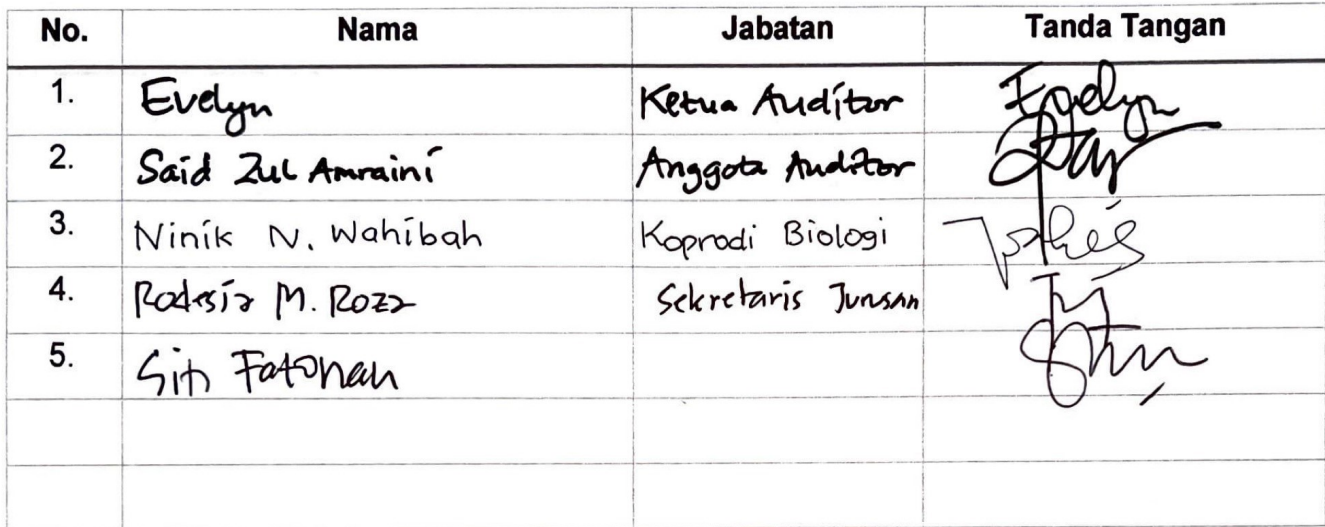 No. Nama Jabatan Tanda Tangan
1. Evelyn Ketua Auditor Evelyn
2. Said Zul Amraini Anggota Auditor
3. Ninik N. Wahibah Koprodi Biologi
4. Rodesia M. Roza Sekretaris Jurusan
5. Siti Fatonah